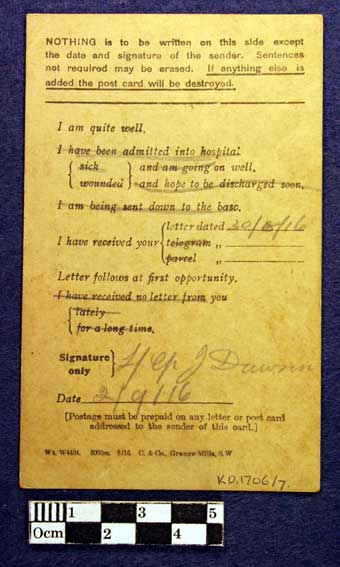 NOTHING is to be written on this side except
the date and signature of the sender. Sentences
not required may be erased. If anything else is
added the post card will be destroyed.
I am quite well.
I have been admitted into hospital
sick and am going on well.
wounded and hope to be discharged soon.
I am being sent down to the base.
letter dated 30/8/16
I have received your telegram „
parcel „
Letter follows at first opportunity.
I have received no letter from you
lately
for a long time.
Signature
only
J Dawson
Date 2/9/16
[Postage must be prepaid on any letter or post card
addressed to the sender of this card.]
6000m. 8/16 C. & Co., Grange Mills, S.W
KO.1706/7.
0cm 1 2 3 4 5